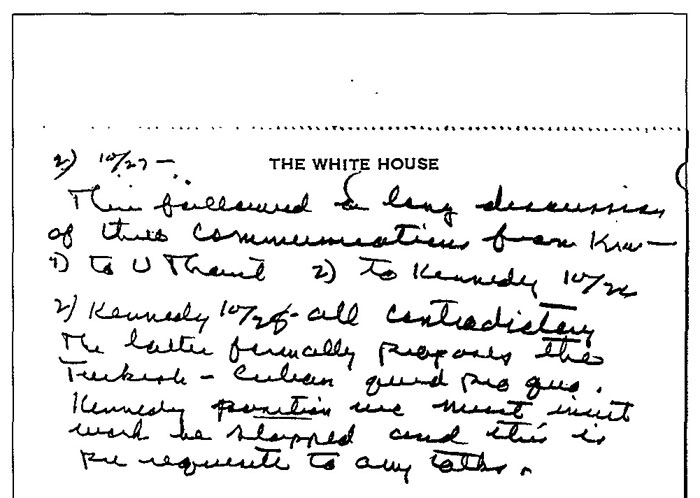 2) 10/27 –
THE WHITE HOUSE
This followed a long discussion
of three communications from Kru—
1) to U Thant 2) to Kennedy 10/26
2) Kennedy 10/28 – all contradictory
The latter formally proposes the
Turkish – Cuban quid pro quo.
Kennedy position we must insist
work be stopped and this is
pre requisite to any talks.